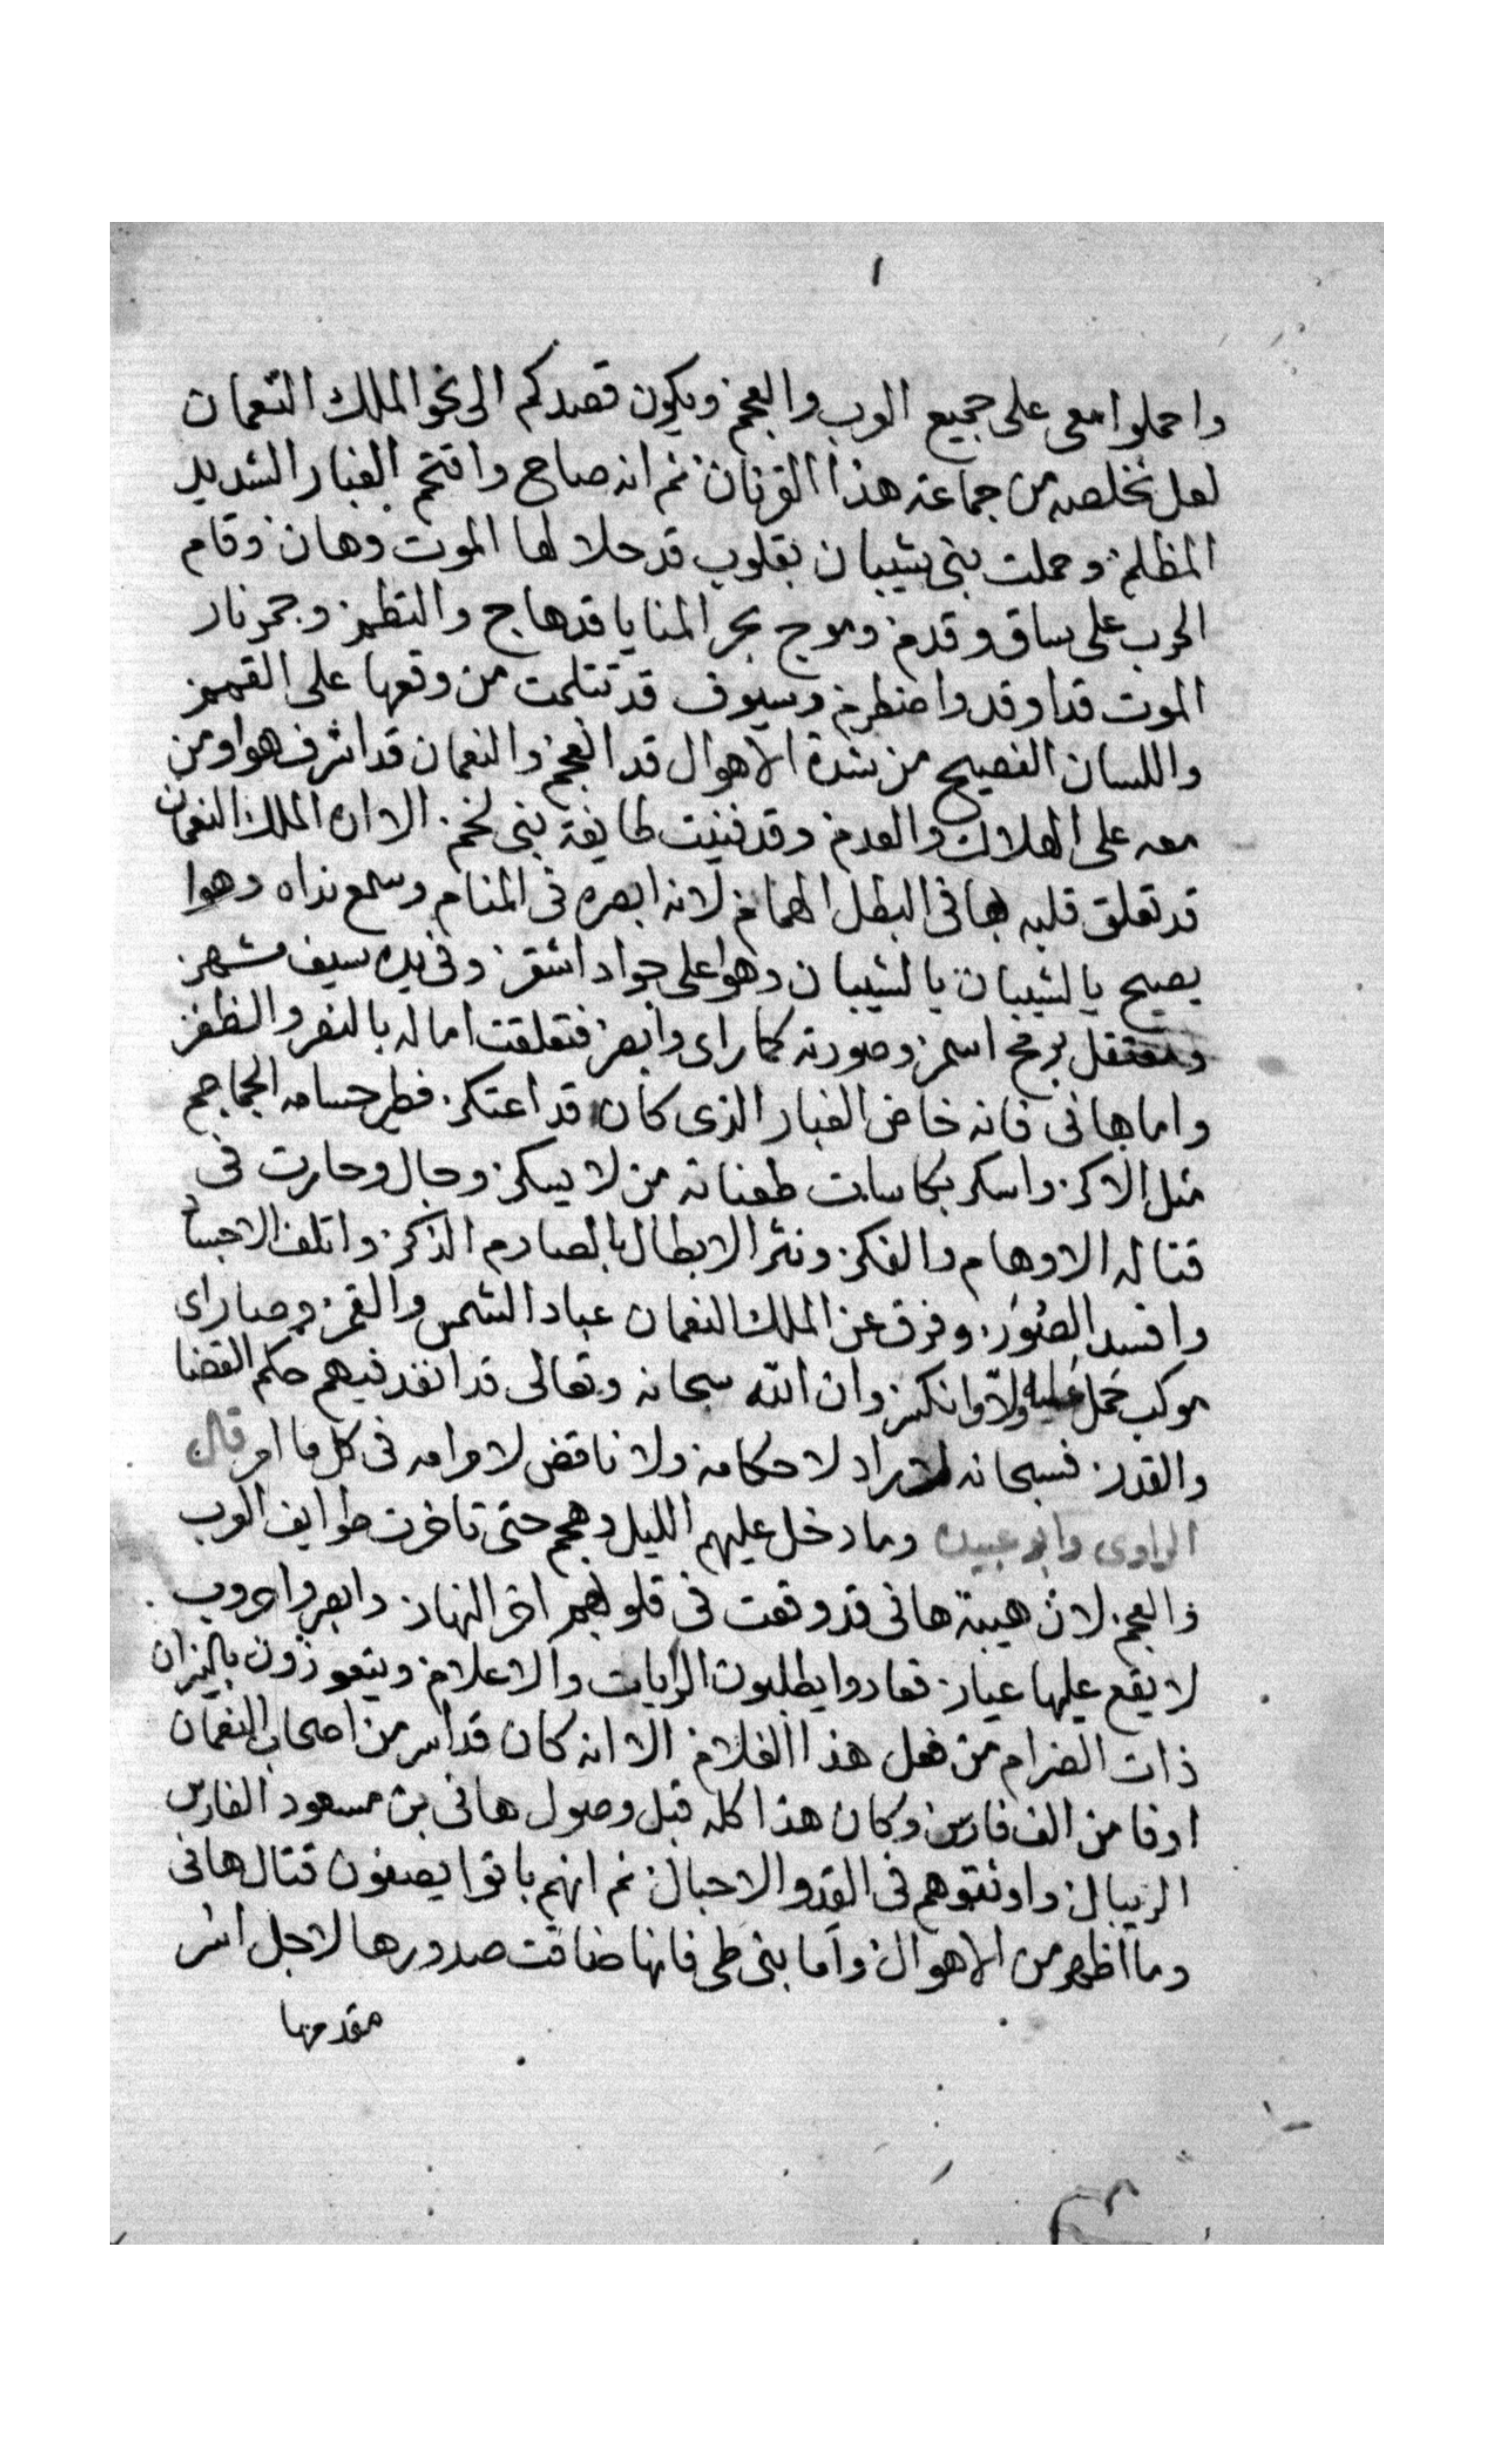 ١
واحملوا معى على جميع العرب والعجم ويكون قصدكم الى نحو الملك النعمان
لعل نخلصه من جماعة هذا القرنان ثم انه صاح واقتحم الغبار الشديد
المظلم وحملت بنى شيبان بقلوب قد حلا لها الموت وهان وقام
الحرب على ساق وقدم وموج بحر المنايا قد هاج والتطم وجمر نار
الموت قد اوقد واضطرم وسيوف قد تثلمت من وقعها على القمم
واللسان الفصيح من شدة الاهوال قد انعجم والنعمان قد اشرف هوا ومن
معه على الهلاك والعدم وقد فنيت طايفة بنى لخم الا ان الملك النعمان
قد تعلق قلبه بهانى البطل الهمام لانه ابصره فى المنام وسمع نداه وهوا
يصيح يا لشيبان يا لشيبان وهوا على جواد اشقر وفى يده سيف مشهر
ومعتقل برمح اسمر وصورته كما راى وابصر فتعلقت اماله بالنصر والظفر
واما هانى فانه خاض الغبار الذى كان قد اعتكر فطير حسامه الجماجم
مثل الاكر واسكر بكاسات طعناته من لا يسكر وجال وحارت فى
قتاله الاوهام والفكر ونثر الابطال بالصارم الذكر واتلف الاجساد
وافسد الصُوَر وفرق عن الملك النعمان عباد الشمس والقمر وصار اى
موكب حمل عليه ولّا وانكسر وان الله سبحانه وتعالى قد انفد فيهم حكم القضا
والقدر فسبحانه لا راد لاحكامه ولا ناقض لاوامره فى كل ما امر قال
الراوى وابو عبيده وما دخل عليهم الليل وهجم حتى تاخرت طوايف العرب
والعجم لان هيبة هانى قد وقعت فى قلوبهم اخر النهار وابصروا حروب
لا يقع عليها عيار فعادوا يطلبون الرايات والاعلام ويتعوذون بالنيران
ذات الضرام من فعل هذا الغلام الا انه كان قد اسر من اصحاب النعمان
اوفا من الف فارس وكان هذا كله قبل وصول هانى بن مسعود الفارس
الريبال واوثقوهم فى القد والاحبال ثم انهم باتوا يصفون قتال هانى
وما اظهر من الاهوال واما بنى طى فانها ضاقت صدورها لاجل اسر
مقدمها